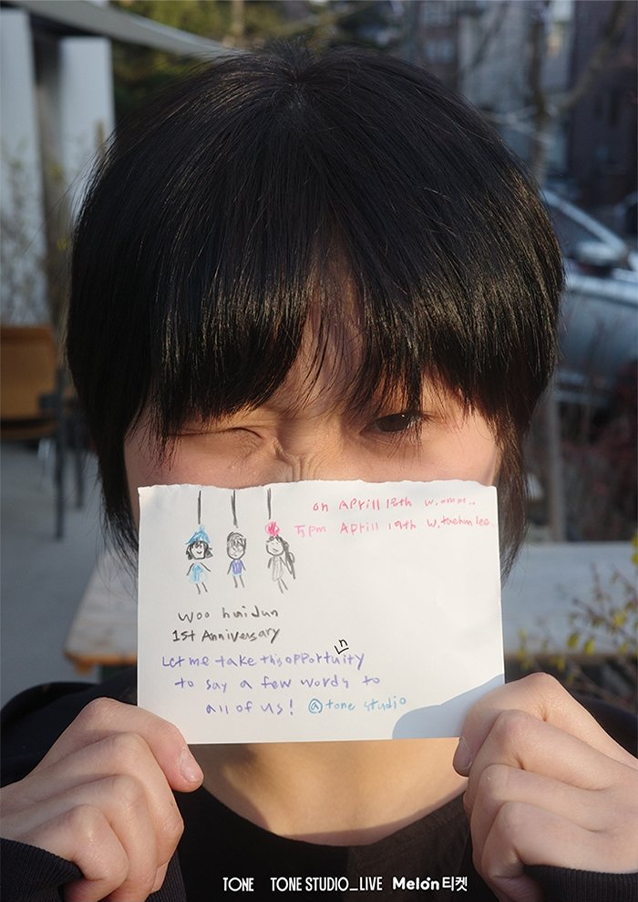 on Aprill 18th w. omm...
5pm Aprill 19th w. thehun lee..
woo huijun
1st Anniversary
Let me take this opportunity
to say a few words to
all of us! @tone studio
TONE TONE STUDIO_LIVE Melon티켓